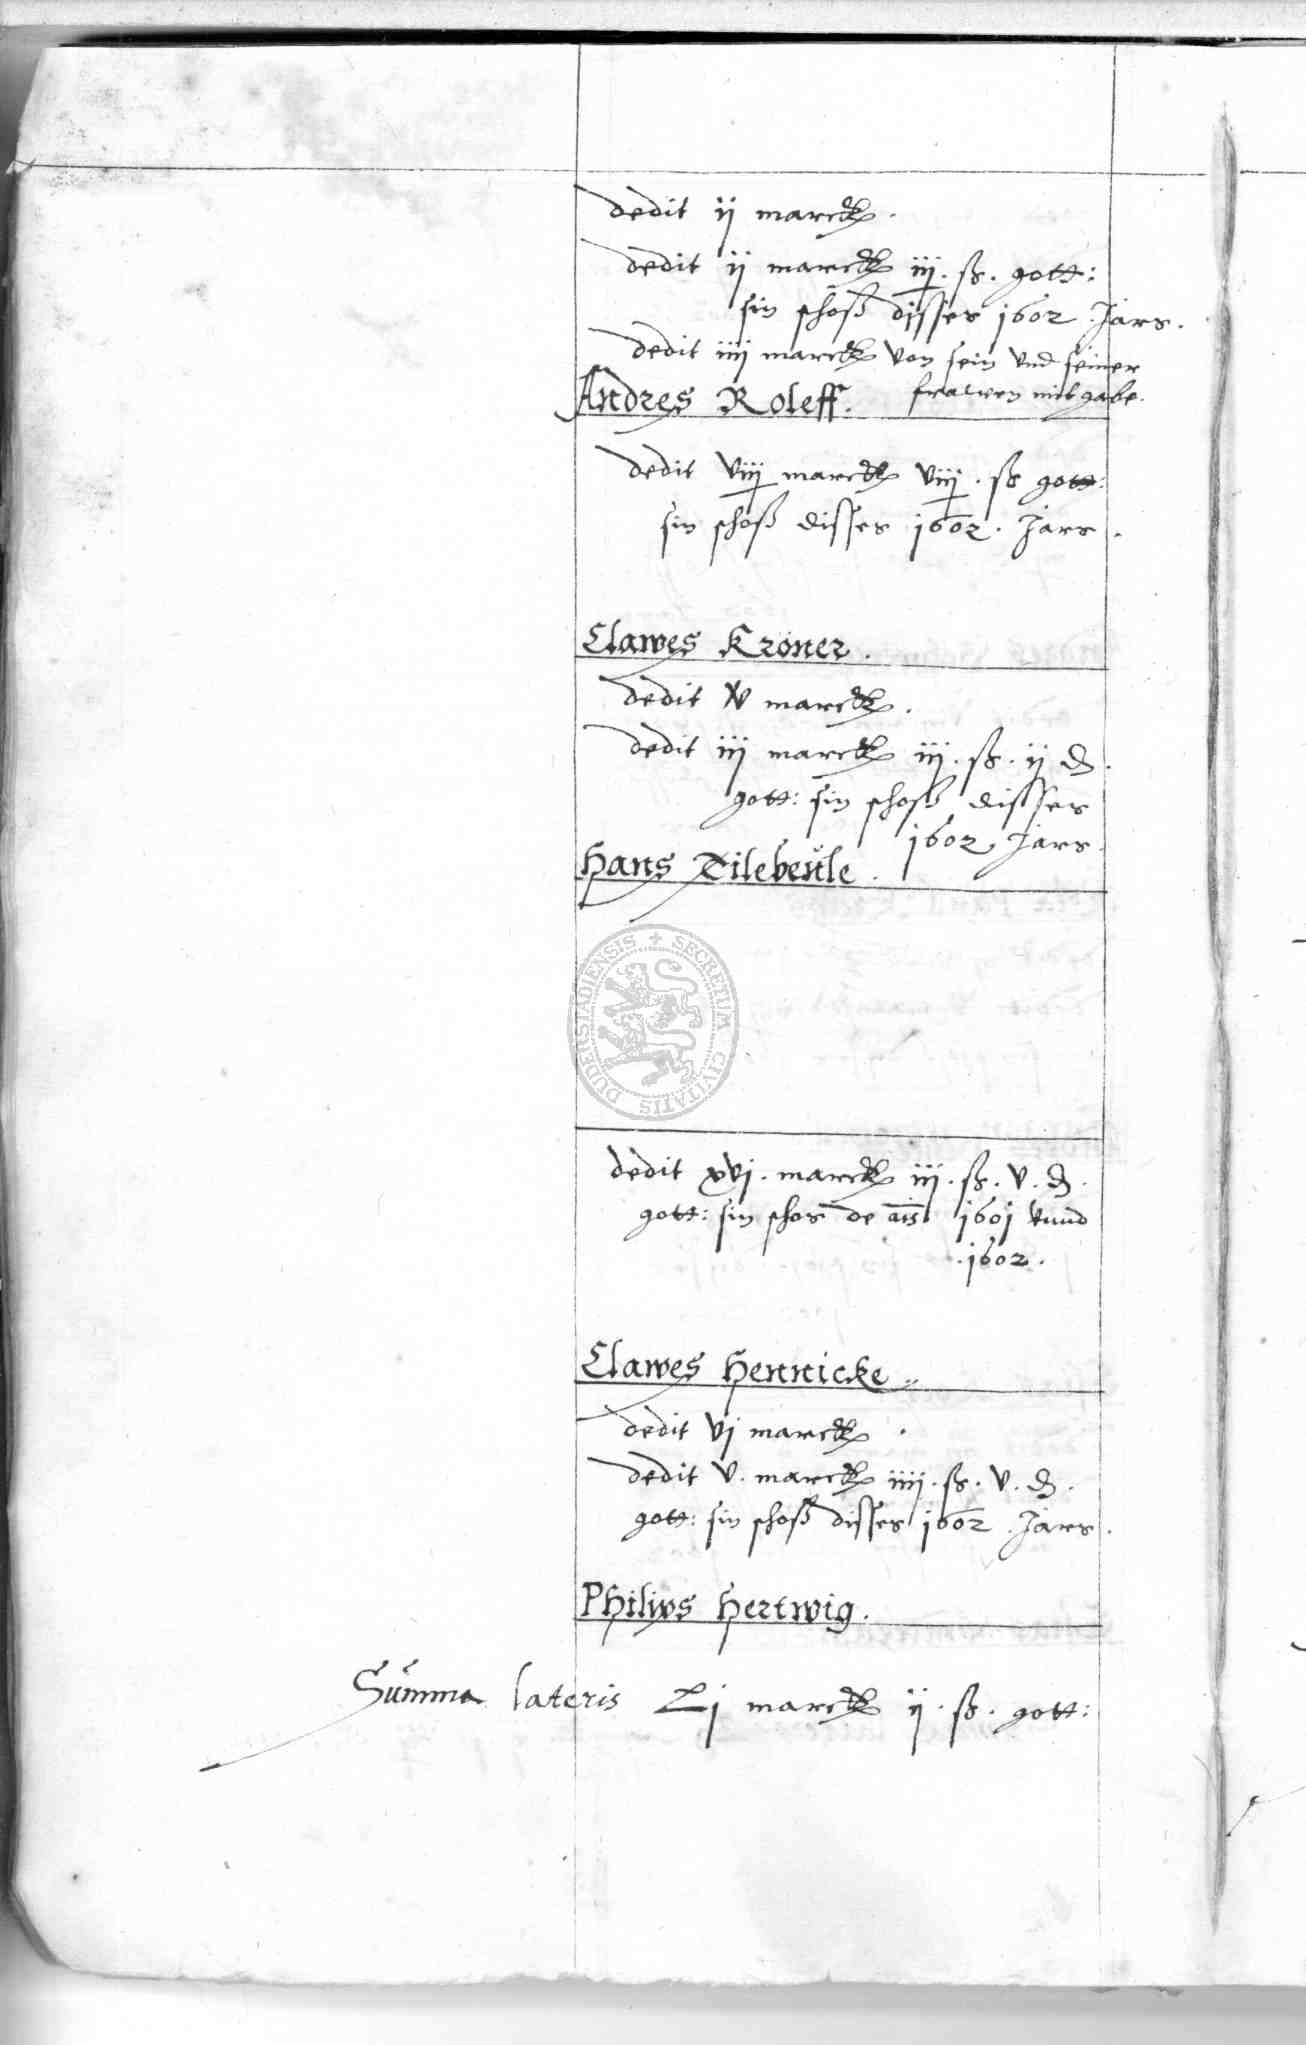 dedit ij marck.
dedit ij marck iij. ß. gott:
sin schoß disses 1602 Jars.
dedit iiij marck von sein vnd seiner
frawen mitgabe.
Andres Roleff.
dedit viij marck viij. ß gott:
sin schoß disses 1602. Jars.
Clawes Kröner.
dedit v marck.
dedit iij marck iij. ß. ij ₰.
gott: sin schoß disses
1602 Jars.
Hans Dilebeule.
SECRETUM CIVITATIS DUDERSTADIENSIS
dedit xvj. marck iij. ß. v. ₰.
gott: sin schos de ais 1601 vnnd
.1602.
Clawes Hennicke.
dedit vj marck.
dedit v. marck iiij. ß. v. ₰.
gott: sin schoß disses 1602 Jars.
Philips Hertwig.
Summa lateris Lj marck ij. ß. gott: